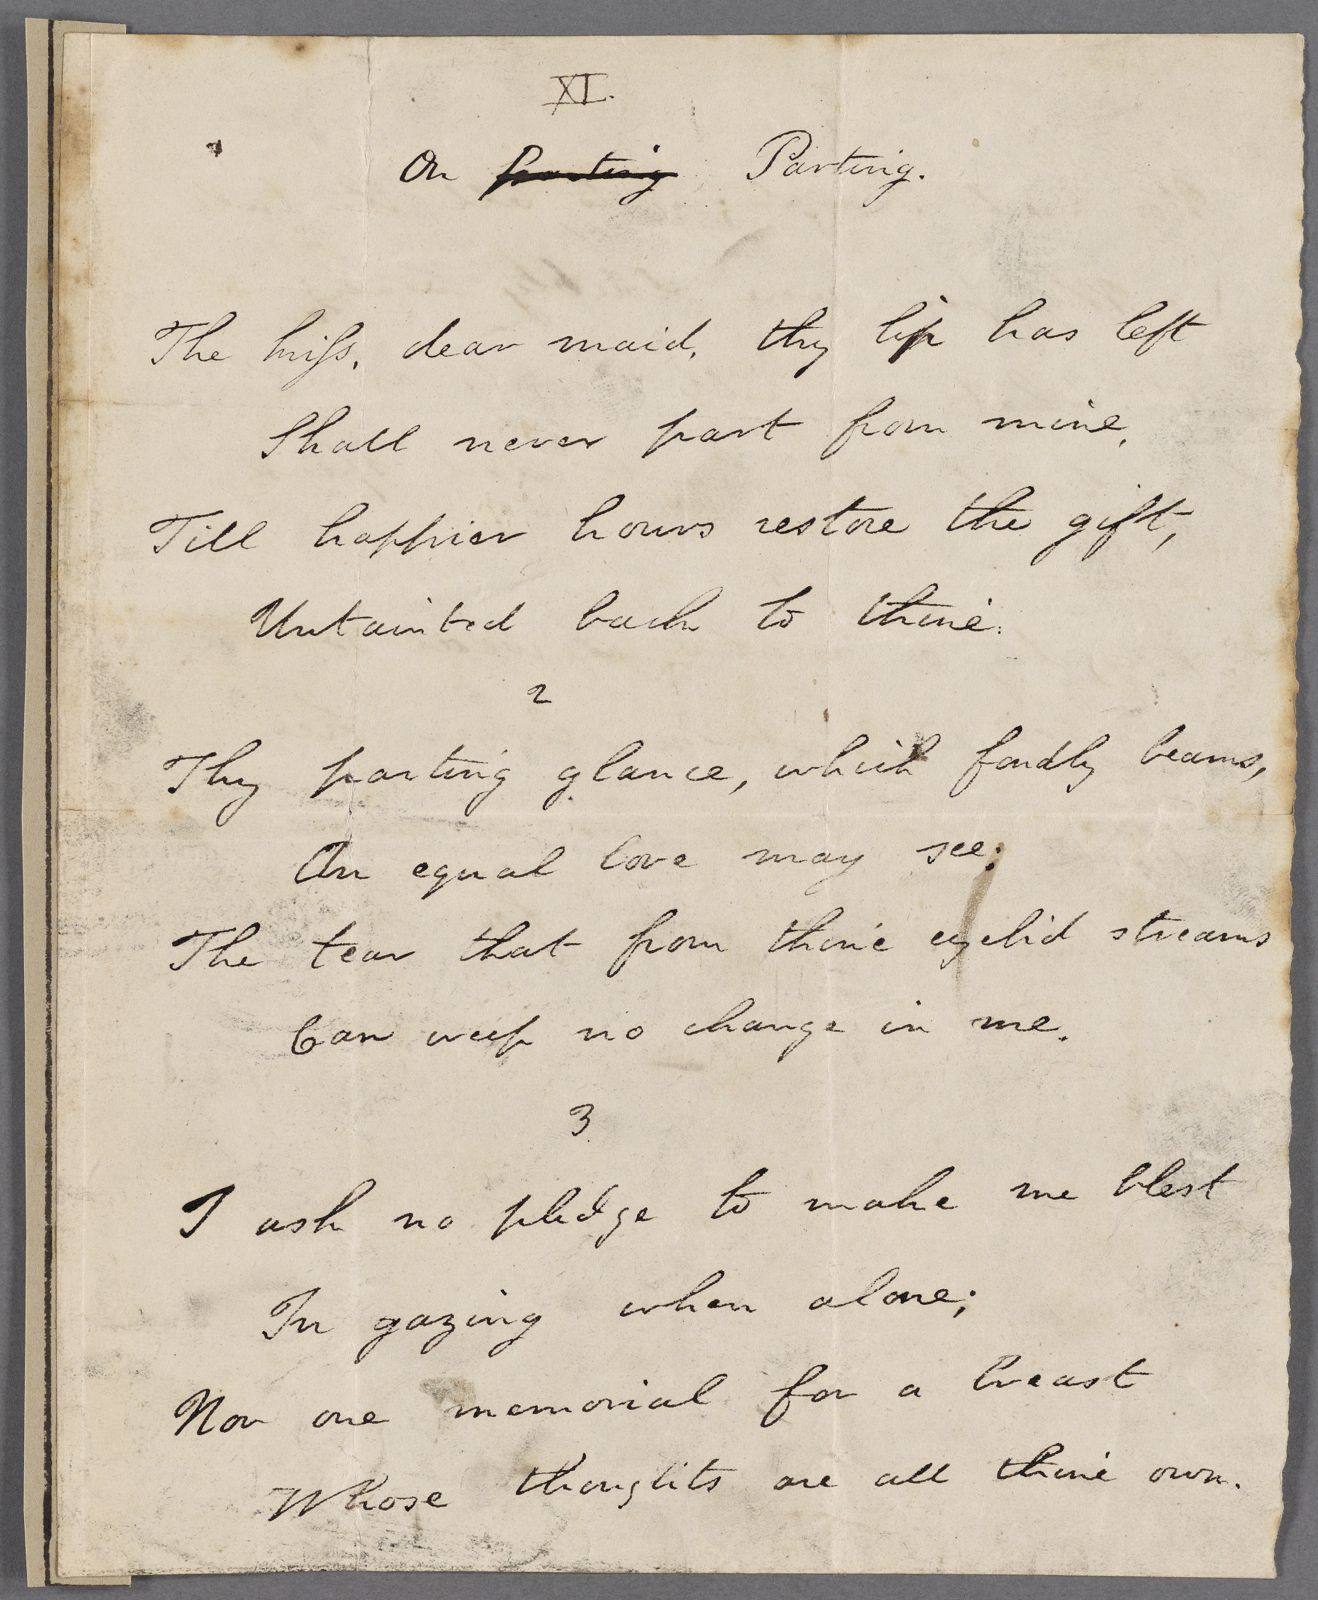 XI.
On parting Parting.
The kiss, dear maid, thy lip has left
Shall never part from mine,
Till happier hours restore the gift,
Untainted back to thine.
2
Thy parting glance, which fondly beams,
An equal love may see:
The tear that from thine eyelid streams
Can weep no change in me.
3
I ask no pledge to make me blest
In gazing when alone;
Nor one memorial for a breast
Whose thoughts are all thine own.